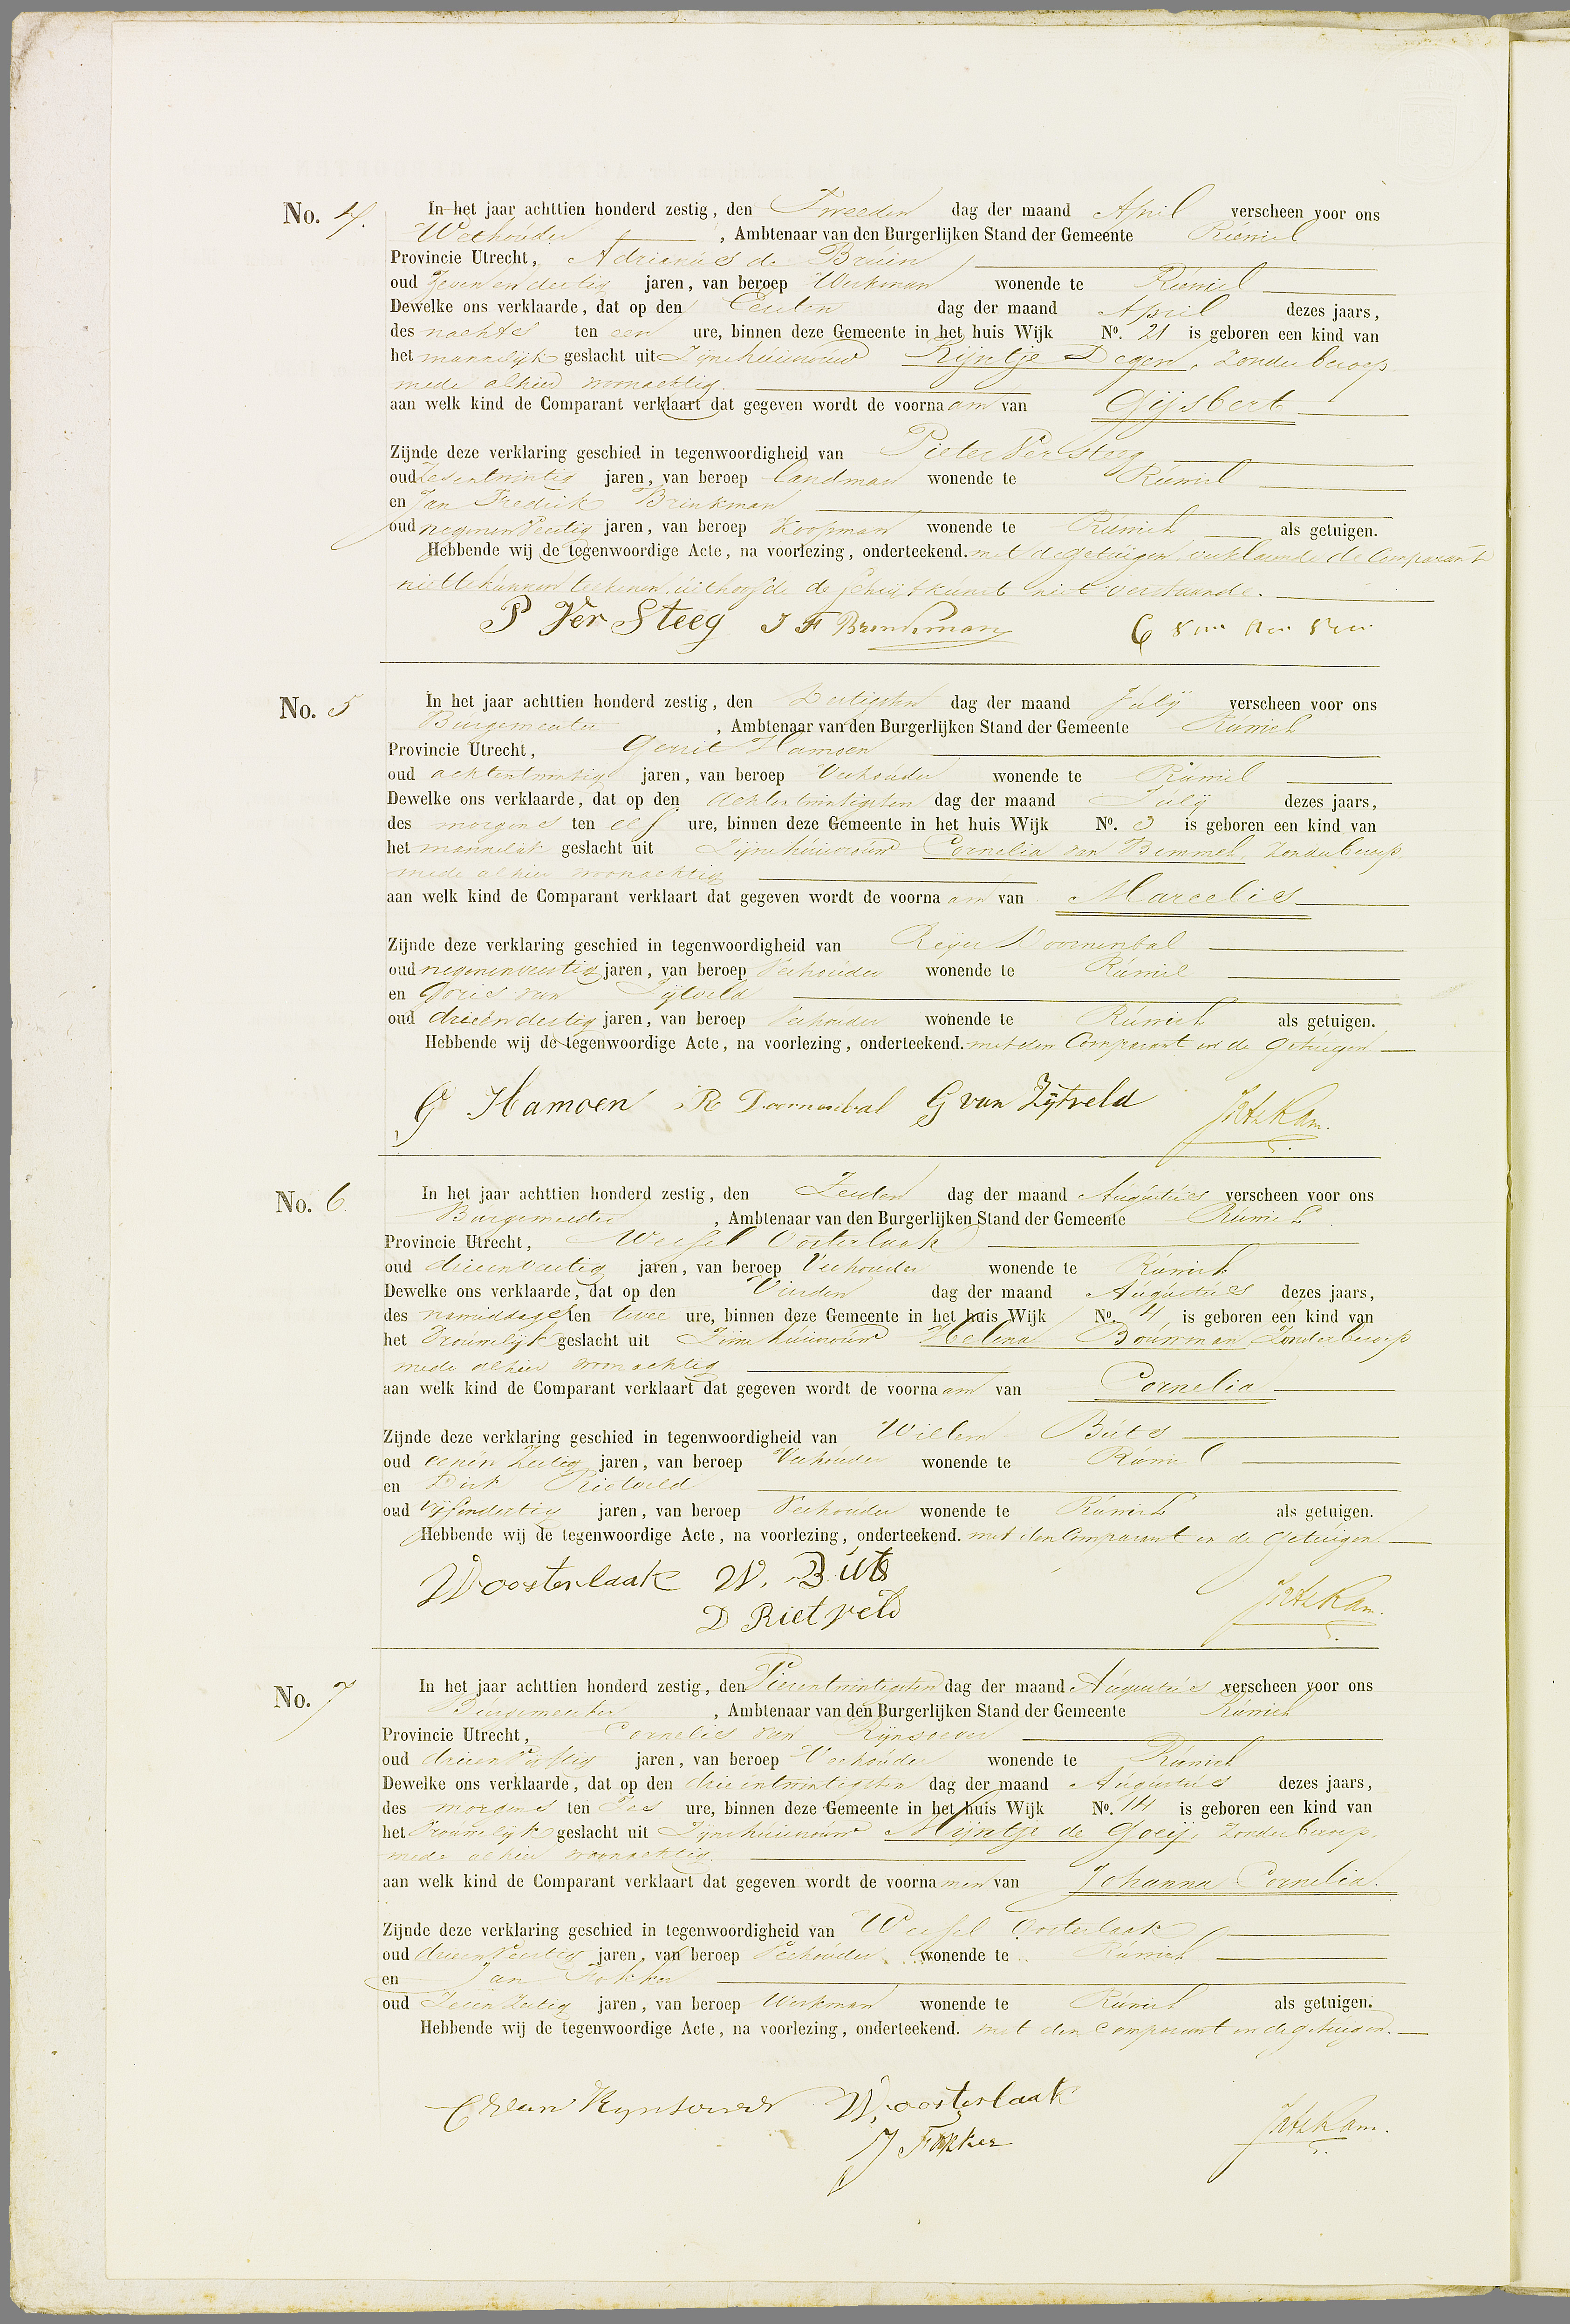 No. 4. In het jaar achttien honderd zestig, den Tweeden dag der maand April verscheen voor ons
Wethouder, Ambtenaar van den Burgerlijken Stand der Gemeente Ruwiel
Provincie Utrecht, Adrianus de Bruin
oud Zeven en dertig jaren, van beroep Werkman wonende te Ruwiel
Dewelke ons verklaarde, dat op den Eersten dag der maand April dezes jaars,
des nachts ten een ure, binnen deze Gemeente in het huis Wijk No. 21 is geboren een kind van
het mannelijk geslacht uit Zijne huisvrouw Rijntje Degen, Zonder beroep
mede alhier woonachtig.
aan welk kind de Comparant verklaart dat gegeven wordt de voornaam van Gijsbert
Zijnde deze verklaring geschied in tegenwoordigheid van Pieter Ver Steeg
oud Zesentwintig jaren, van beroep landman wonende te Ruwiel
en Jan Fredrik Brinkman
oud negenenveertig jaren, van beroep Koopman wonende te Ruwiel als getuigen.
Hebbende wij de tegenwoordige Acte, na voorlezing, onderteekend. met de getuigen, verklarende de Comparant
niet te kunnen teekenen uithoofde de schrijfkunst niet verstaande.
P Ver Steeg J F Brinkman
No. 5 In het jaar achttien honderd zestig, den Dertigsten dag der maand Julij verscheen voor ons
Burgemeester, Ambtenaar van den Burgerlijken Stand der Gemeente Ruwiel
Provincie Utrecht, Gerrit Hamoen
oud achtentwintig jaren, van beroep Veehouder wonende te Ruwiel
Dewelke ons verklaarde, dat op den achtentwintigsten dag der maand Julij dezes jaars,
des morgens ten elf ure, binnen deze Gemeente in het huis Wijk No. 3 is geboren een kind van
het mannelijk geslacht uit Zijne huisvrouw Cornelia van Bemmel, Zonder beroep
mede alhier woonachtig
aan welk kind de Comparant verklaart dat gegeven wordt de voornaam van Marcelis
Zijnde deze verklaring geschied in tegenwoordigheid van Reijer Doornenbal
oud negenenveertig jaren, van beroep Veehouder wonende te Ruwiel
en Goris van Zijtveld
oud drieendertig jaren, van beroep Veehouder wonende te Ruwiel als getuigen.
Hebbende wij de tegenwoordige Acte, na voorlezing, onderteekend. met den Comparant en de Getuigen.
G Hamoen R Doornenbal G van Zijtveld
No. 6. In het jaar achttien honderd zestig, den Zesden dag der maand Augustus verscheen voor ons
Burgemeester, Ambtenaar van den Burgerlijken Stand der Gemeente Ruwiel
Provincie Utrecht, Wessel Oosterlaak
oud drieenveertig jaren, van beroep Veehouder wonende te Ruwiel
Dewelke ons verklaarde, dat op den Vierden dag der maand Augustus dezes jaars,
des namiddags ten twee ure, binnen deze Gemeente in het huis Wijk No. 4 is geboren een kind van
het Vrouwelijk geslacht uit Zijne huisvrouw Helena Bouwman Zonder beroep
mede alhier woonachtig
aan welk kind de Comparant verklaart dat gegeven wordt de voornaam van Cornelia
Zijnde deze verklaring geschied in tegenwoordigheid van Willem Buts
oud eenenzestig jaren, van beroep Veehouder wonende te Ruwiel
en Dirk Rietveld
oud vijfendertig jaren, van beroep Veehouder wonende te Ruwiel als getuigen.
Hebbende wij de tegenwoordige Acte, na voorlezing, onderteekend. met den Comparant en de Getuigen.
W oosterlaak W. Buts
D Rietveld
No. 7 In het jaar achttien honderd zestig, den Vierentwintigsten dag der maand Augustus verscheen voor ons
Burgemeester, Ambtenaar van den Burgerlijken Stand der Gemeente Ruwiel
Provincie Utrecht, Cornelis van Rijnsoever
oud drieenvijftig jaren, van beroep Veehouder wonende te Ruwiel
Dewelke ons verklaarde, dat op den drieentwintigsten dag der maand Augustus dezes jaars,
des morgens ten Zes ure, binnen deze Gemeente in het huis Wijk No. 14 is geboren een kind van
het Vrouwelijk geslacht uit Zijne huisvrouw Mijntje de Goeij, Zonder beroep
mede alhier woonachtig.
aan welk kind de Comparant verklaart dat gegeven wordt de voornamen van Johanna Cornelia.
Zijnde deze verklaring geschied in tegenwoordigheid van Wessel Oosterlaak
oud drieenveertig jaren, van beroep Veehouder wonende te Ruwiel
en Jan Fokker
oud Zesenzestig jaren, van beroep Werkman wonende te Ruwiel als getuigen.
Hebbende wij de tegenwoordige Acte, na voorlezing, onderteekend. met den Comparant en de getuigen.
C van Rynsoever W oosterlaak
J Fokker